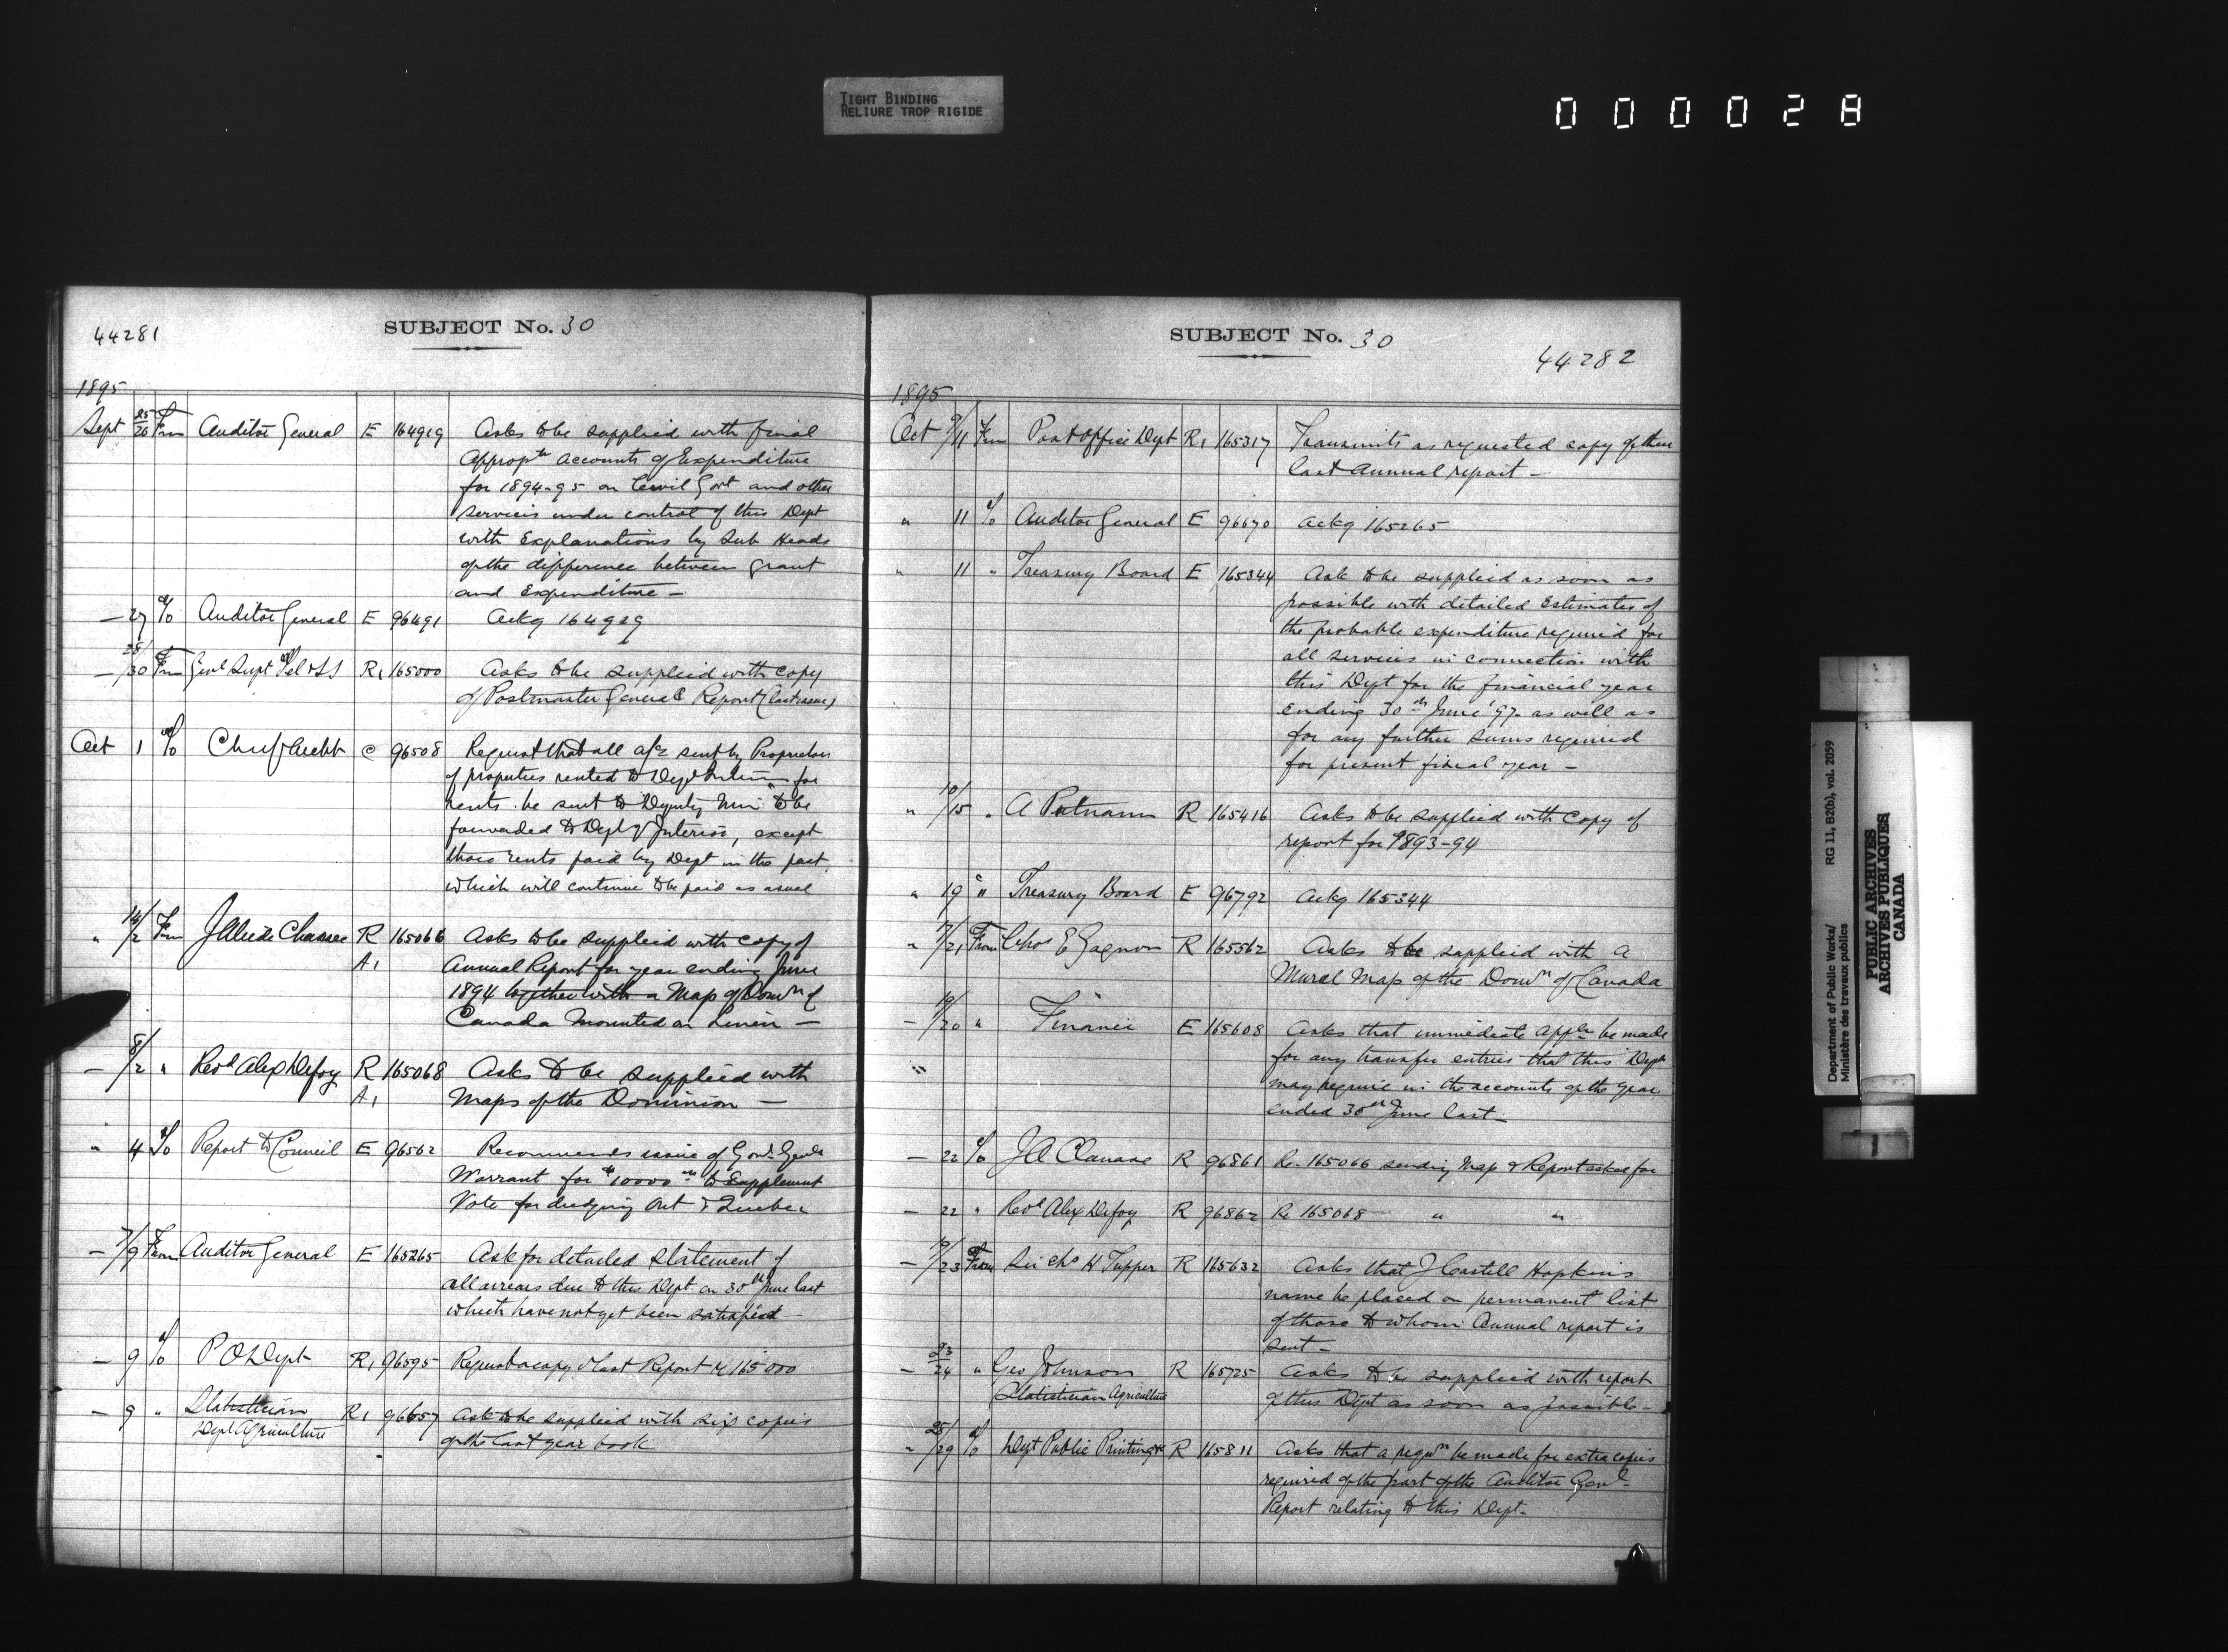 TIGHT BINDING
RELIURE TROP RIGIDE
000028
44281
SUBJECT No. 30
1895
Sept 25/26 From Auditor General E 164929 Asks to be supplied with final
appropn accounts of Expenditure
for 1894-95 on Civil Govt and other
services under control of this Dept
with Explanations by Sub Heads
of the difference between grant
and Expenditure —
— 27 To Auditor General E 96491 Ackg 164929
— 28/30 From Genl Supt Tel & SS R1 165000 Asks to be supplied with copy
of Postmaster Generals Report (last issue)
Oct 1 To Chief Archt C 96508 Request that all a/cs sent by Proprietors
of properties rented to Dept Interior for
rents be sent to Deputy Minr to be
forwarded to Dept of Interior, except
those rents paid by Dept in the past
which will continue to be paid as usual
" /2 From Chasse R 165066 Asks to be supplied with copy of
A1 Annual Report for year ending June
1894 together with a Map of Domn of
Canada Mounted on Linen —
— /2 " Revd Alex Defoy R 165068 Asks to be supplied with
A1 Maps of the Dominion —
" 4 To Report to Council E 96562 Recommends issue of Govr Genls
Warrant for $10000 to Supplement
Vote for dredging Ont & Quebec
— 7/9 From Auditor General E 165265 Ask for detailed Statement of
all arrears due to this Dept on 30th June last
which have not yet been satisfied —
— 9 To P O Dept R1 96595 Request a copy of last Report re 165000
— 9 " Statistician R1 96657 Ask to be supplied with six copies
Dept Agriculture of the last year book
SUBJECT No. 30
44282
1895
Oct 9/11 From Post Office Dept R1 165317 Transmits as requested copy of their
last Annual report —
" 11 To Auditor General E 96670 Ackg 165265
" 11 " Treasury Board E 165344 Ask to be supplied as soon as
possible with detailed Estimates of
the probable expenditure required for
all services in connection with
this Dept for the financial year
ending 30th June '97 as well as
for any further sums required
for present fiscal year —
" 10/15 " A Putnam R 165416 Asks to be supplied with Copy of
report for 1893-94
" 19 " Treasury Board E 96792 Ackg 165344
" /21 From Chas E Gagnon R 165562 Asks to be supplied with a
Mural Map of the Domn of Canada
— 19/20 " Finance E 165608 Asks that immediate appln be made
for any transfer entries that this Dept
may require in the accounts of the year
ended 30th June last —
— 22 To J A Chasse R 96861 Re 165066 sending Map & Report asked for
— 22 " Revd Alex Defoy R 96862 Re 165068 " "
— /23 From Sir Chs H Tupper R 165632 Asks that J Castell Hopkins
name be placed on permanent list
of those to whom Annual report is
sent —
— 23/24 " Geo Johnson R 165725 Asks to be supplied with report
Statistician Agriculture of this Dept as soon as possible —
" 25/29 To Dept Public Printing &c R 165811 Asks that a reqn be made for extra copies
required of the part of the Auditor Genl
Report relating to this Dept —
Department of Public Works/
Ministère des travaux publics
RG 11, B2(b), vol. 2059
PUBLIC ARCHIVES
ARCHIVES PUBLIQUES
CANADA